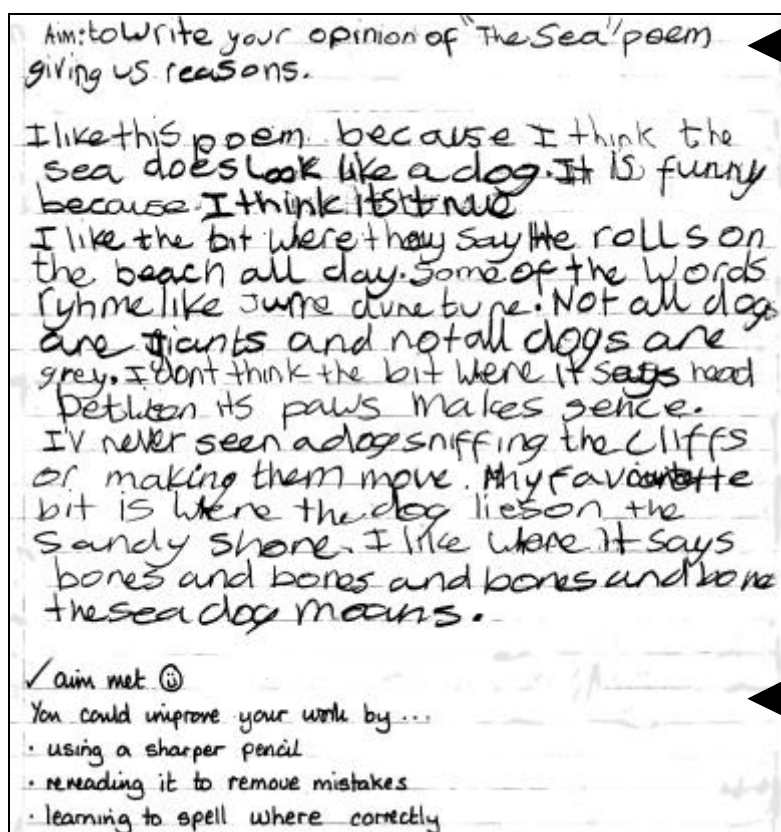 Aim: to write your opinion of "The Sea" poem
giving us reasons.
I like this poem because I think the
sea does look like a dog. It is funny
because I think its true
I like the bit were they say He rolls on
the beach all day. Some of the words
ryhme like June dune tune. Not all dogs
are giants and not all dogs are
grey. I dont think the bit were it says head
between its paws makes sence.
IV never seen a dog sniffing the cliffs
or making them move. My favourite
bit is were the dog lies on the
sandy shore. I like were it says
bones and bones and bones and bone
the sea dog moans.
✓ aim met ☺
You could improve your work by ...
· using a sharper pencil
· rereading it to remove mistakes
· learning to spell where correctly